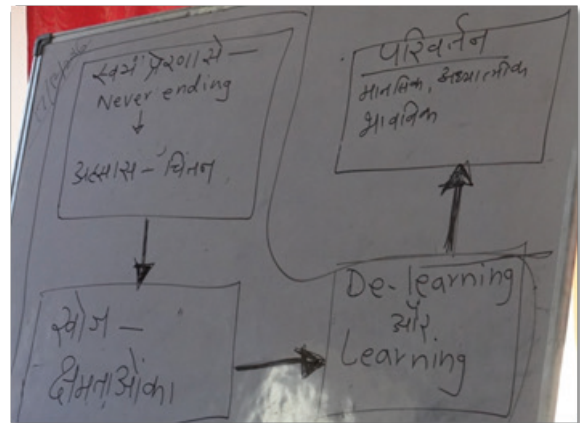 स्वयं प्रेरणा से —
Never ending
↓
अहसास - चिंतन
खोज -
क्षमताओंका
De-learning
और
Learning
परिवर्तन
मानसिक, अध्यात्मीक
भावनिक